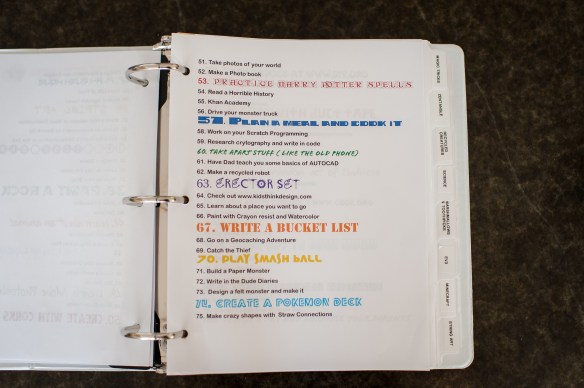 51. Take photos of your world
52. Make a Photo book
53. PRACTICE HARRY POTTER SPELLS
54. Read a Horrible History
55. Khan Academy
56. Drive your monster truck
57. PLAN A MEAL AND COOK IT
58. Work on your Scratch Programming
59. Research crytography and write in code
60. TAKE APART STUFF ( LIKE THE OLD PHONE)
61. Have Dad teach you some basics of AUTOCAD
62. Make a recycled robot
63. ERECTOR SET
64. Check out www.kidsthinkdesign.com
65. Learn about a place you want to go
66. Paint with Crayon resist and Watercolor
67. WRITE A BUCKET LIST
68. Go on a Geocaching Adventure
69. Catch the Thief
70. PLAY SMASH BALL
71. Build a Paper Monster
72. Write in the Dude Diaries
73. Design a felt monster and make it
74. CREATE A POKEMON DECK
75. Make crazy shapes with Straw Connections
MAGIC TRICKS
SCIENCE
MINECRAFT
STRING ART